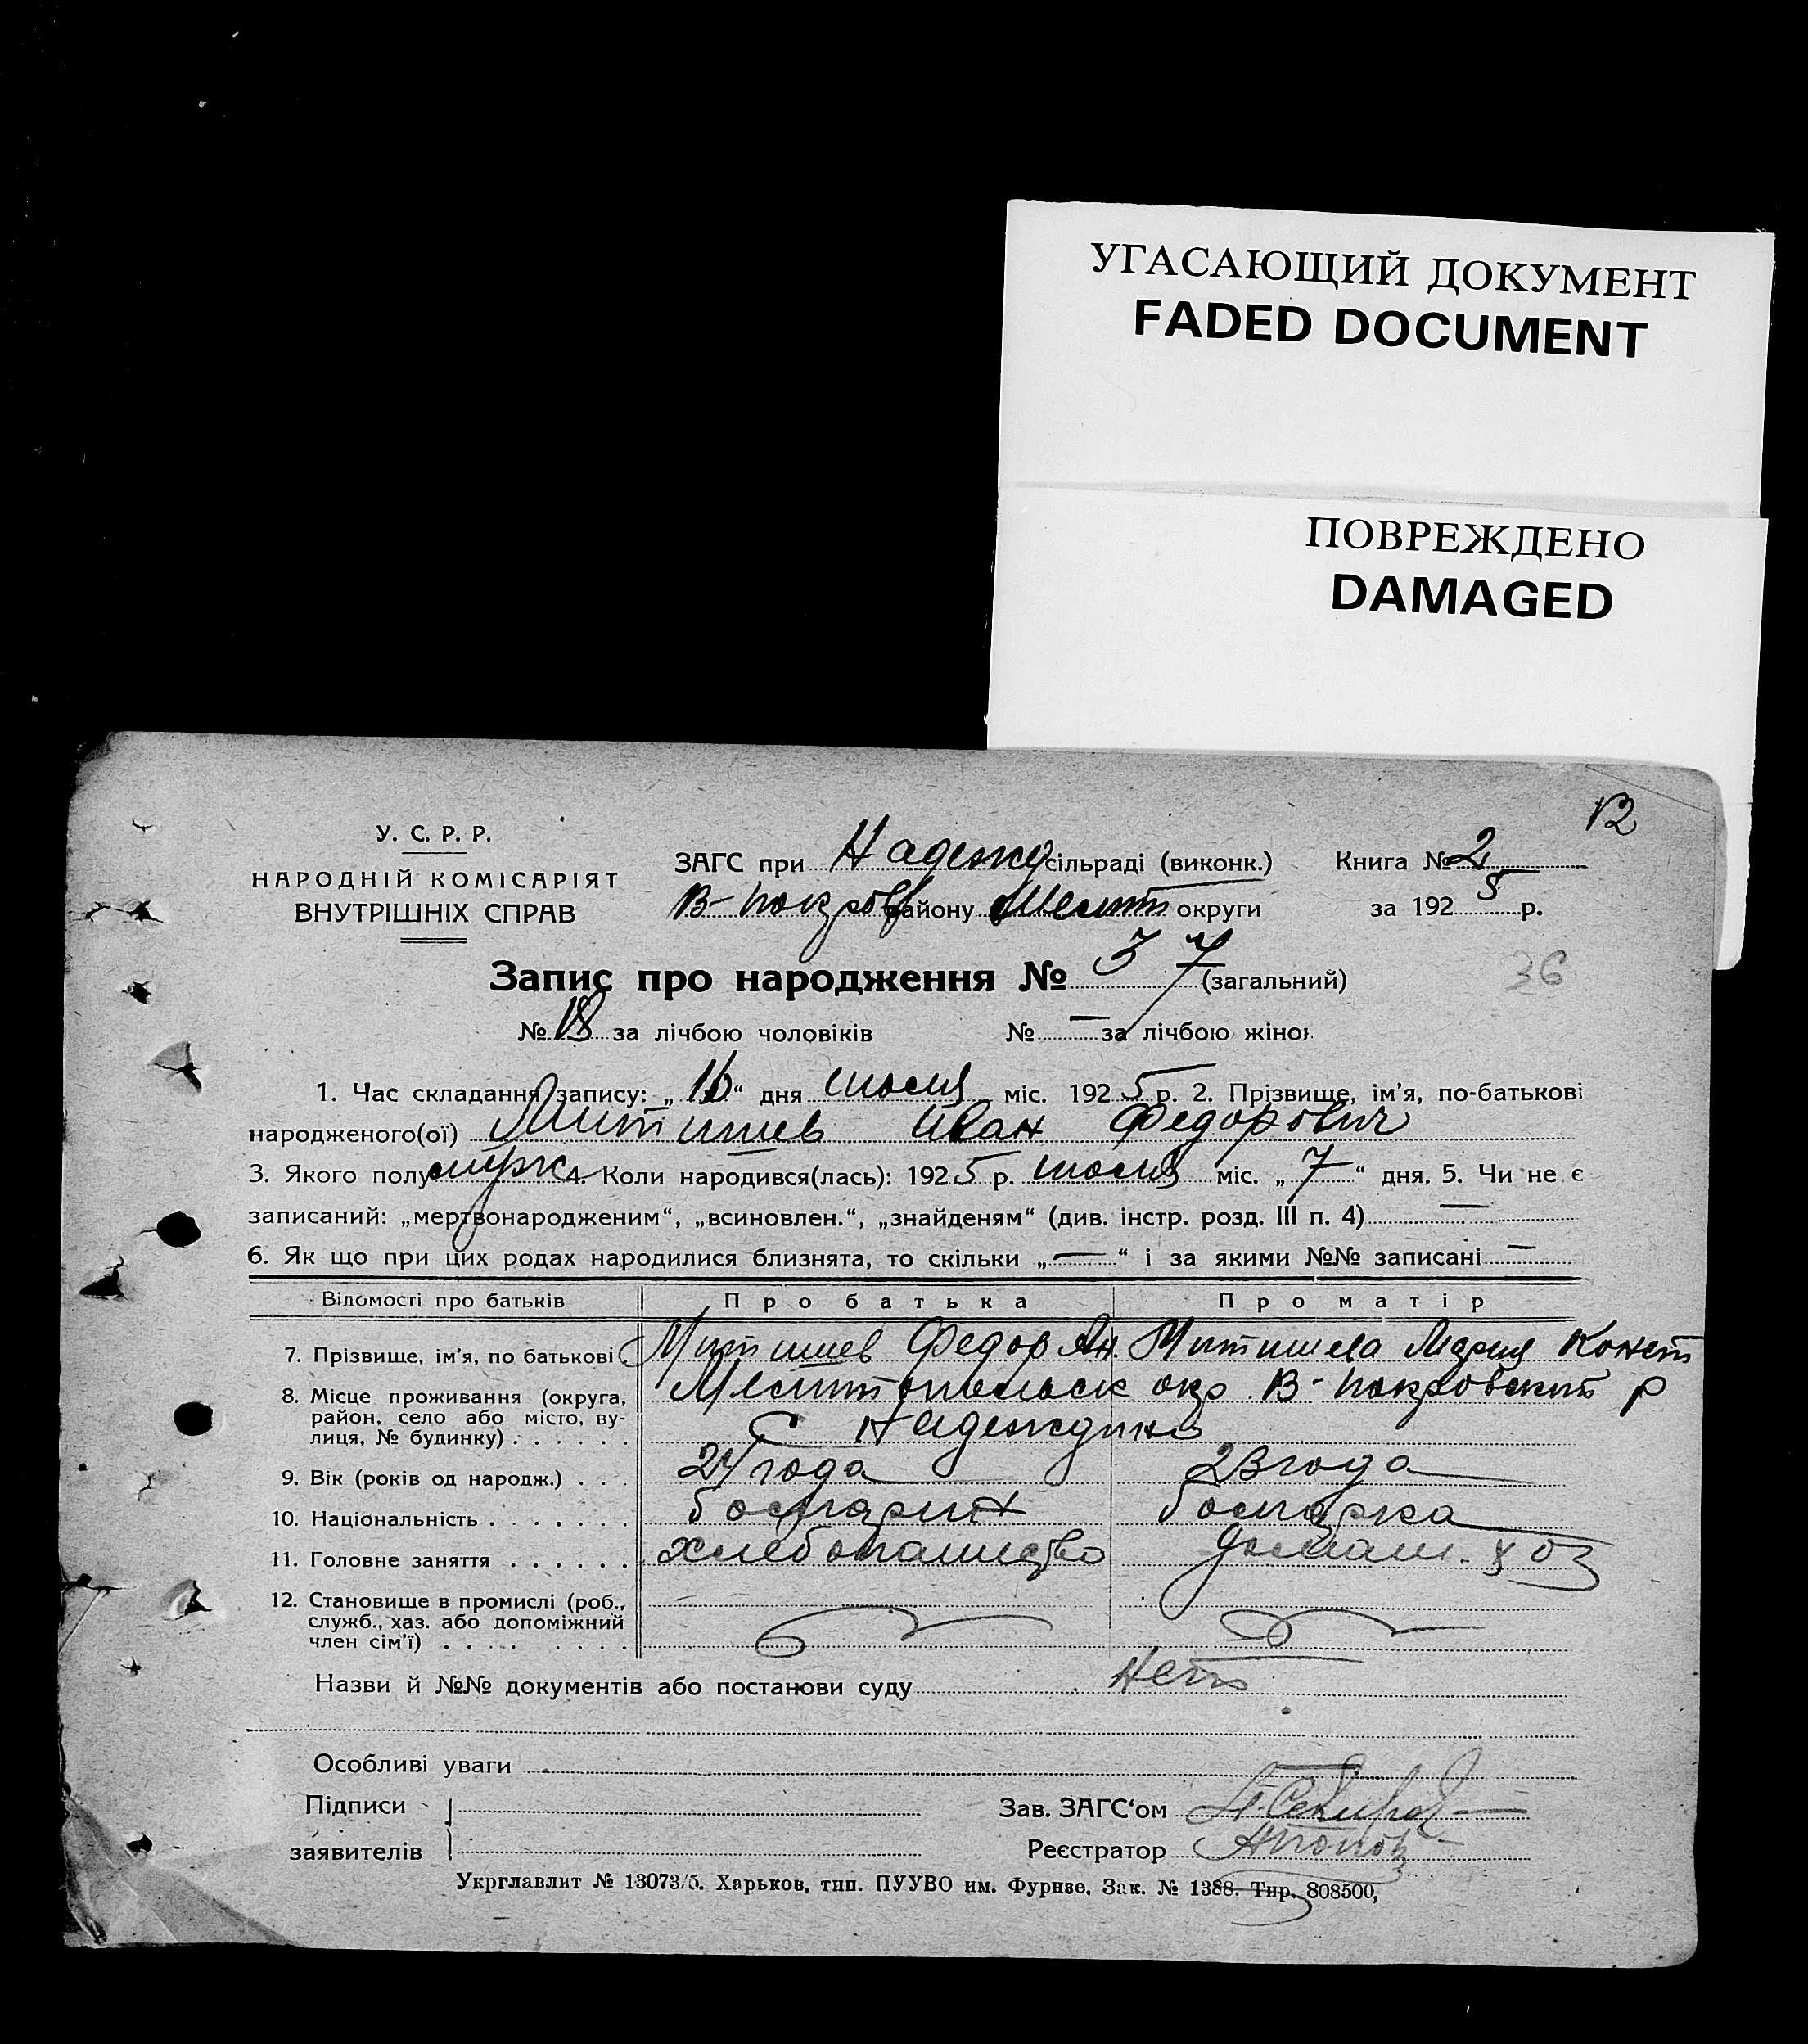 УГАСАЮЩИЙ ДОКУМЕНТ
FADED DOCUMENT
ПОВРЕЖДЕНО
DAMAGED
У. С. Р. Р.
НАРОДНІЙ КОМІСАРІЯТ
ВНУТРІШНІХ СПРАВ
ЗАГС при Надежд сільраді (виконк.) Книга № 2
В-Покров району Мелит округи за 192 5 р.
Запис про народження № 37 (загальний)
36
№ 18 за лічбою чоловіків № — за лічбою жінок
1. Час складання запису: „16“ дня июля міс. 192 5 р. 2. Прізвище, ім'я, по-батькові
народженого(ої) Митишев Иван Федорович
3. Якого полу мужск 4. Коли народився(лась): 192 5 р. июля міс. „7“ дня. 5. Чи не є
записаний: „мертвонародженим“, „всиновлен.“, „знайденям“ (див. інстр. розд. III п. 4) —
6. Як що при цих родах народилися близнята, то скільки „—“ і за якими №№ записані —
Відомості про батьків Про батька Про матір
7. Прізвище, ім'я, по батькові Митишев Федор Ан. Митишева Мария Конст
8. Місце проживання (округа, район, село або місто, вулиця, № будинку) Мелитопольск окр. В-Покровский р
с Надеждино
9. Вік (років од народж.) 24 года 23 года
10. Національність болгарин болгарка
11. Головне заняття хлебопашество домаш. хоз
12. Становище в промислі (роб.,
служб., хаз. або допоміжний
член сім'ї)
Назви й №№ документів або постанови суду нет
Особливі уваги
Підписи
заявителів
Зав. ЗАГС'ом
Реєстратор АПопов
Укрглавлит № 13073/5. Харьков, тип. ПУУВО им. Фурнзе. Зак. № 1388. Тир. 808500,